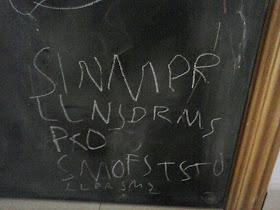 SINMPR
LLNSDRMS
PKO
SMOFSTSTO
LLDRSMS